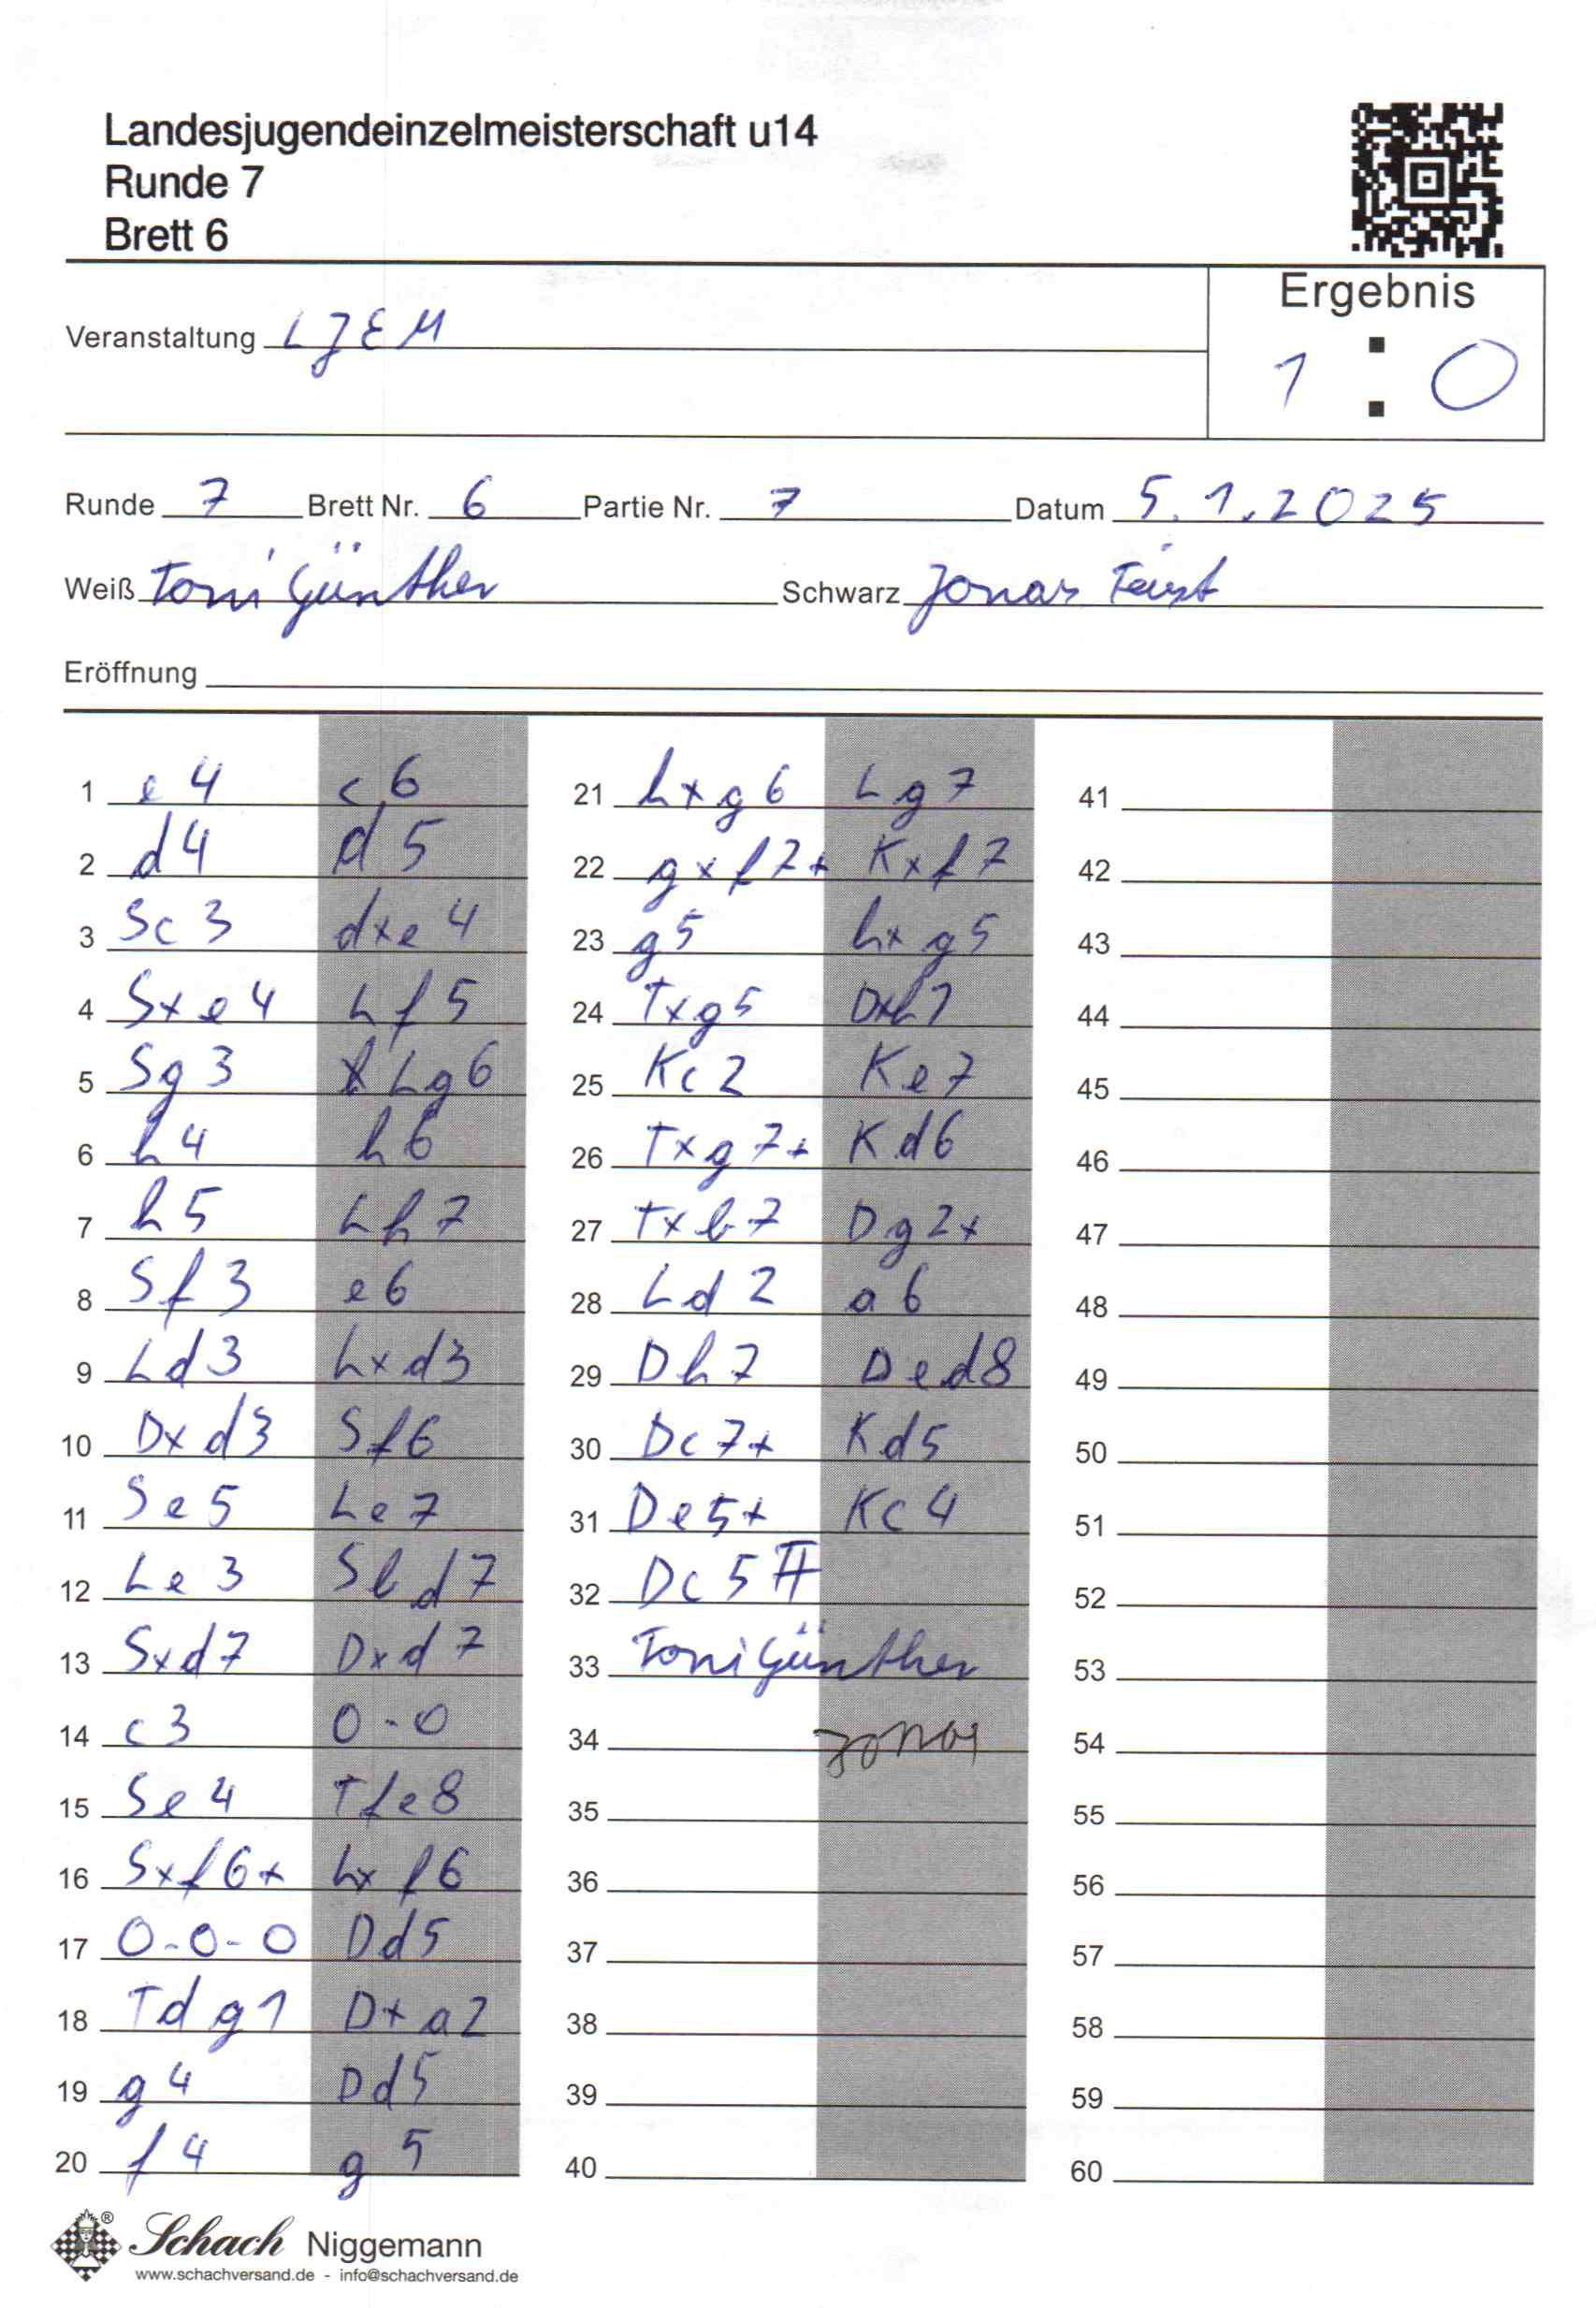 Landesjugendeinzelmeisterschaft u14
Runde 7
Brett 6
Ergebnis
Veranstaltung LJEM
1 : 0
Runde 7 Brett Nr. 6 Partie Nr. 7 Datum 5.1.2025
Weiß Toni Günther Schwarz Jonas Feist
Eröffnung
1 e4 c6
2 d4 d5
3 Sc3 dxe4
4 Sxe4 Lf5
5 Sg3 Lg6
6 h4 h6
7 h5 Lh7
8 Sf3 e6
9 Ld3 Lxd3
10 Dxd3 Sf6
11 Se5 Le7
12 Le3 Sbd7
13 Sxd7 Dxd7
14 c3 0-0
15 Se4 Tfe8
16 Sxf6+ Lxf6
17 0-0-0 Dd5
18 Tdg1 Dxa2
19 g4 Dd5
20 f4 g5
21 hxg6 Lg7
22 gxf7+ Kxf7
23 g5 hxg5
24 Txg5 Dxh1
25 Kc2 Ke7
26 Txg7+ Kd6
27 Txb7 Dg2+
28 Ld2 a6
29 Dh7 Ded8
30 Dc7+ Kd5
31 De5+ Kc4
32 Dc5#
33 Toni Günther
34 Jonas
35
36
37
38
39
40
41
42
43
44
45
46
47
48
49
50
51
52
53
54
55
56
57
58
59
60
Schach Niggemann
www.schachversand.de - info@schachversand.de